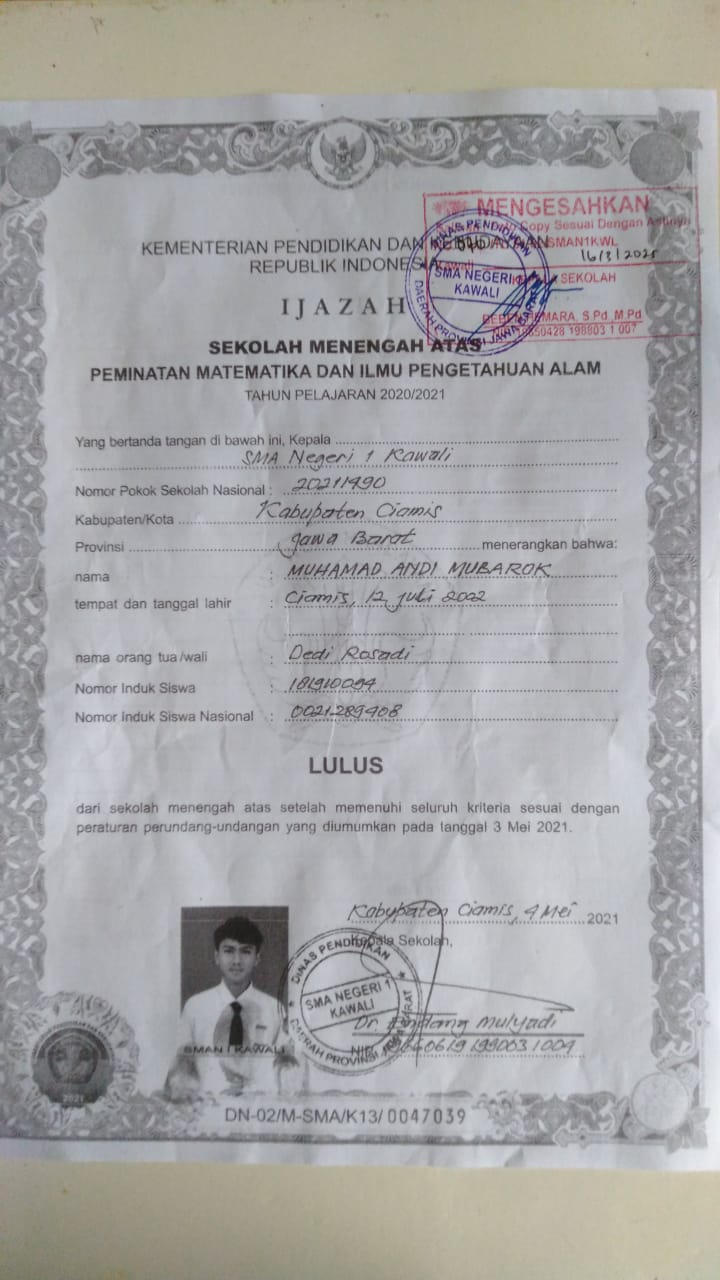 MENGESAHKAN
Copy Sesuai Dengan Aslinya
SMAN1KWL
16/3/2025
SEKOLAH
MARA, S.Pd.,M.Pd
650428 198803 1 007
DINAS PENDIDIKAN
SMA NEGERI 1
KAWALI
DAERAH PROVINSI JAWA BARAT
KEMENTERIAN PENDIDIKAN DAN KEBUDAYAAN
REPUBLIK INDONESIA
IJAZAH
SEKOLAH MENENGAH ATAS
PEMINATAN MATEMATIKA DAN ILMU PENGETAHUAN ALAM
TAHUN PELAJARAN 2020/2021
Yang bertanda tangan di bawah ini, Kepala
SMA Negeri 1 Kawali
Nomor Pokok Sekolah Nasional : 20211490
Kabupaten/Kota Kabupaten Ciamis
Provinsi Jawa Barat menerangkan bahwa:
nama : MUHAMAD ANDI MUBAROK
tempat dan tanggal lahir : Ciamis, 12 Juli 2002
nama orang tua/wali : Dedi Rosadi
Nomor Induk Siswa : 181910094
Nomor Induk Siswa Nasional : 0021289408
LULUS
dari sekolah menengah atas setelah memenuhi seluruh kriteria sesuai dengan
peraturan perundang-undangan yang diumumkan pada tanggal 3 Mei 2021.
Kabupaten Ciamis, 4 Mei 2021
Kepala Sekolah,
DINAS PENDIDIKAN
SMA NEGERI 1
KAWALI
DAERAH PROVINSI JAWA BARAT
Mulyadi
NIP
SMAN 1 KAWALI
2021
DN-02/M-SMA/K13/0047039